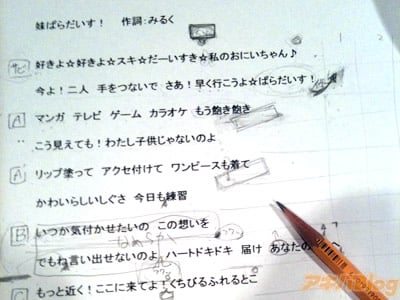 妹ぱらだいす! 作詞:みるく
サビ 好きよ☆好きよ☆スキ☆だーいすき☆私のおにいちゃん♪
今よ!二人 手をつないで さあ!早く行こうよ☆ぱらだいす!
A マンガ テレビ ゲーム カラオケ もう飽き飽き
こう見えても!わたし子供じゃないのよ
A リップ塗って アクセ付けて ワンピースも着て
かわいらしいしぐさ 今日も練習
B いつか気付かせたいの この想いを
でもね言い出せないのよ ハートドキドキ 届け あなたの
C もっと近く!ここに来てよ!くちびるふれるとこ
アキバBlog